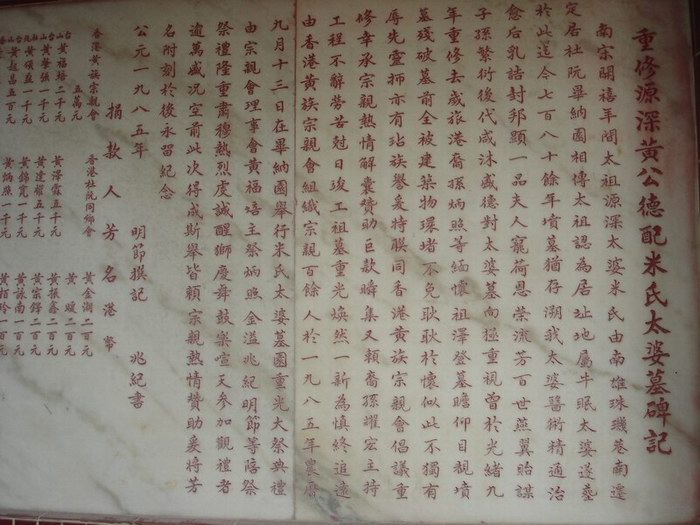 重修源深黃公德配米氏太婆墓碑記
南宗開禧年間太祖源深太婆米氏由南雄珠璣巷南遷
定居杜阮畢納園相傳太祖認為居址地屬牛眠太婆遂塟
於此迄今七百八十餘年墳墓猶存溯我太婆醫術精通治
愈后乳誥封邦顯一品夫人寵荷恩榮流芳百世燕翼貽謀
子孫繁衍後代咸沐盛德對太婆墓向極重視曾於光緒九
年重修去歲旅港裔孫炳照等緬懷祖澤登墓瞻仰目覩墳
墓殘破墓前全被建築物環堵不免耿耿於懷似此不獨有
辱先靈抑亦有玷族譽爰特联同香港黃族宗親會倡議重
修幸承宗親熱情解囊贊助巨款瞬集又賴裔孫耀宏主持
工程不辭勞苦尅日竣工祖墓重光煥然一新為慎終追遠
由香港黃族宗親會組織宗親百餘人於一九八五年農曆
九月十三日在畢納園舉行米氏太婆墓園重光大祭典禮
由宗親會理事會黃福培主祭炳照金溢兆紀明節等陪祭
祭禮隆重肅穆熱烈虔誠醒獅慶舞鼓樂喧天參加觀禮者
逾萬盛況空前此次得成斯舉皆賴宗親熱情贊助爰將芳
名附刻於後永留紀念
公元一九八五年　明節撰記　兆紀書
捐款人芳名港幣
香港黃族宗親會　香港杜阮同鄉會
五萬元
黃福培二千元　黃澤霖五千元　黃金衡二百元
黃擎張一千元　黃達耀五千元　黃駿二百元
黃頌益一千元　黃錦寬一千元　黃振鑫二百元
黃超昌五百元　黃炳原一千元　黃宗鐸二百元
黃詠南一百元
黃栢玲一百元